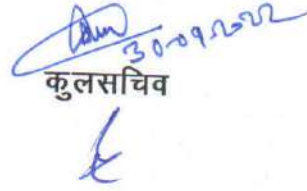 30-09-2022
कुलसचिव